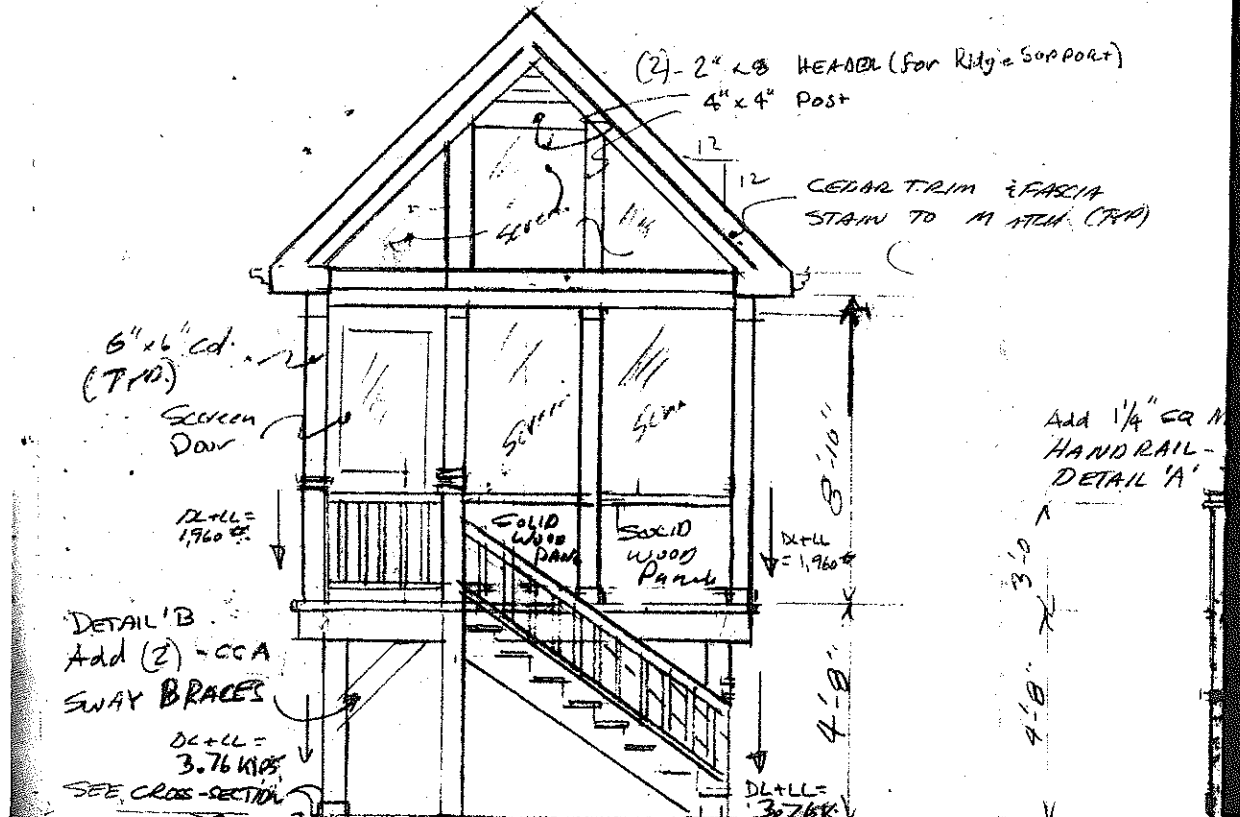 (2)- 2" x 8 HEADER (for Ridge SUPPORT)
4" x 4" Post
12
12
CEDAR TRIM & FASCIA
STAIN TO MATCH (TYP)
Screen
6" x 6" Col.
(TYP.)
Screen
Door
Screen
Scrn
8'-10"
Add 1/4" SQ
HANDRAIL -
DETAIL 'A'
DL+LL=
1,960 #
SOLID
WOOD
PANL
SOLID
WOOD
Panel
DL+LL
= 1,960 #
3'-0
DETAIL 'B
Add (2) - CCA
SWAY BRACES
4'-8"
4'-8"
DL+LL =
3.76 KIPS
SEE CROSS-SECTION
DL+LL=
3.76K